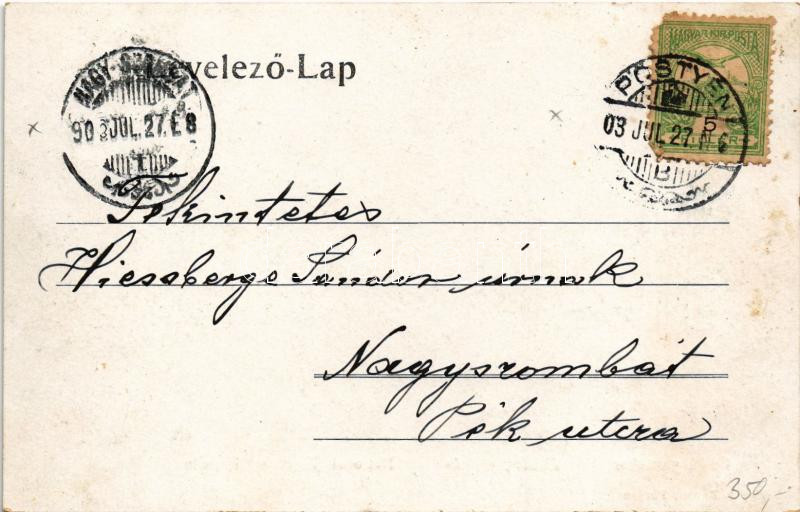 Levelező-Lap
NAGY-SZOMBAT
903 JUL. 27. E 8
MAGYAR KIR. POSTA
PÖSTYÉN
03 JUL 27. N 6
5
B
Tekintetes
Hiessberge Sándor úrnak
Nagyszombat
Pék utcza
350,-